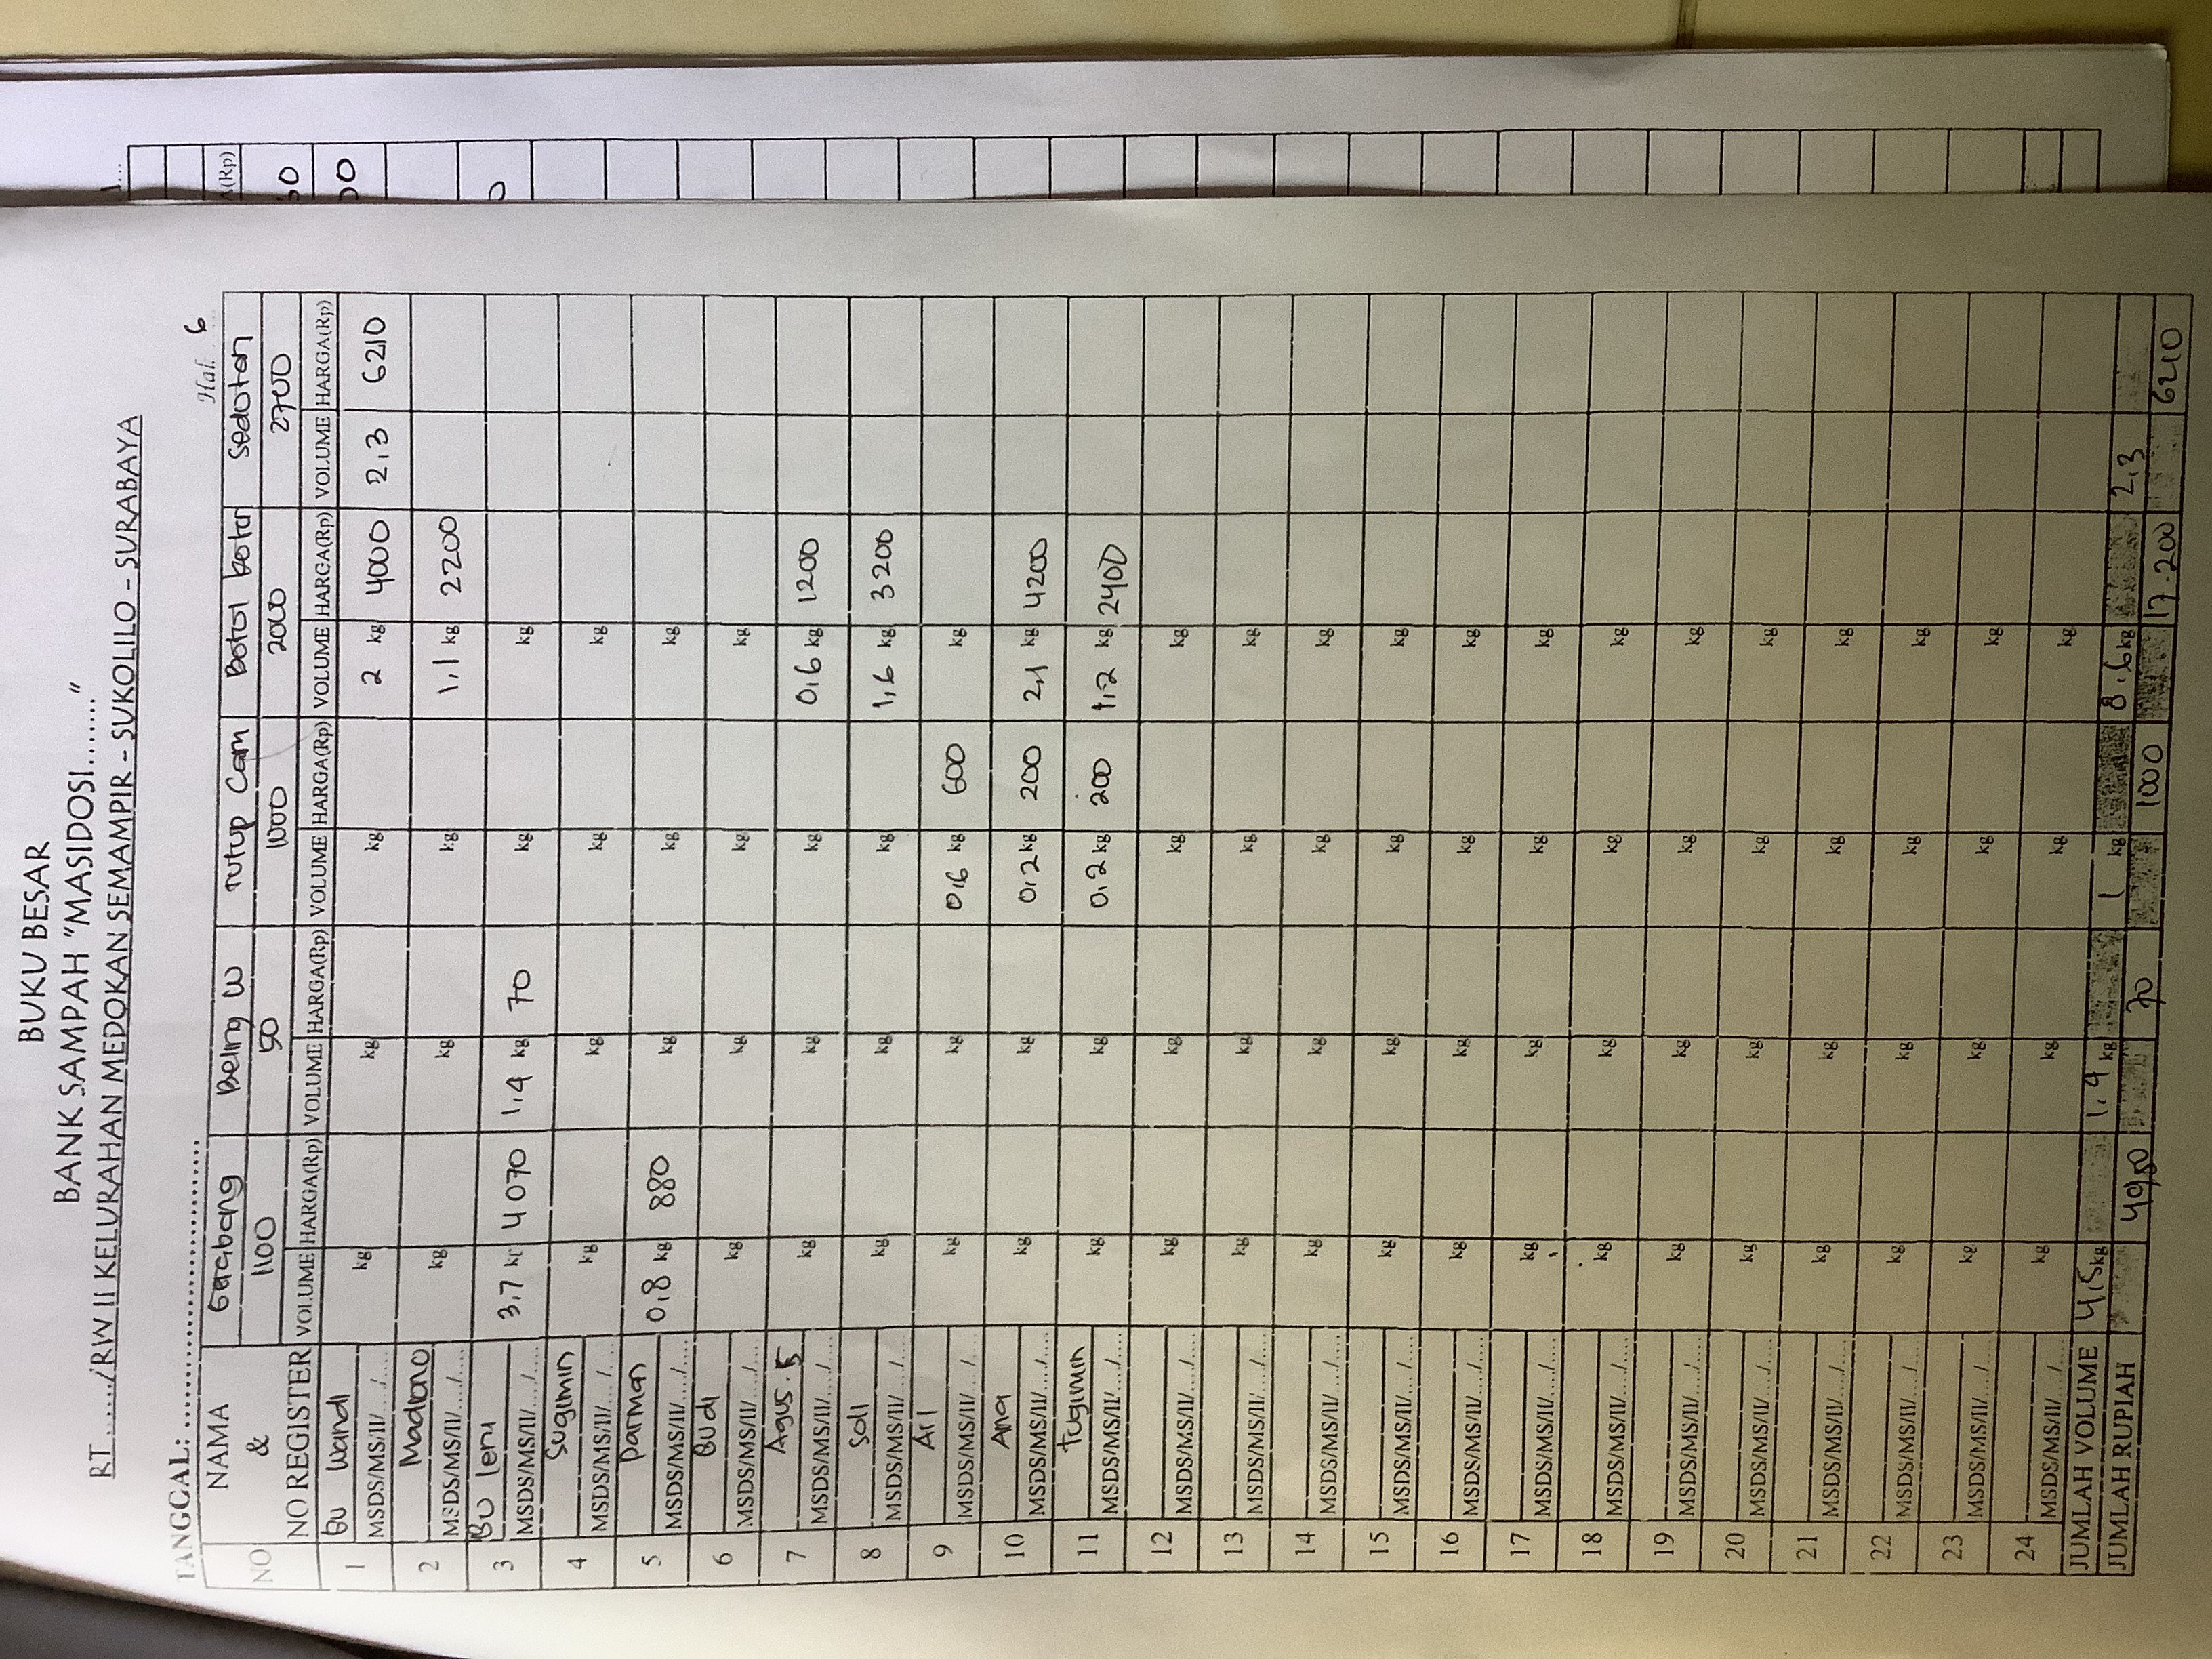 BUKU BESAR
BANK SAMPAH "MASIDOSI......."
RT ....../RW II KELURAHAN MEDOKAN SEMAMPIR - SUKOLILO - SURABAYA
TANGGAL: ............................
Hal. 6
NO NAMA & NO REGISTER Gerabang Beling W Tutup Cam Botol botol Sedotan
1100 50 1000 2000 2700
VOLUME HARGA(Rp) VOLUME HARGA(Rp) VOLUME HARGA(Rp) VOLUME HARGA(Rp) VOLUME HARGA(Rp)
1 Bu Wandi
MSDS/MS/II/..../.... kg kg kg 2 kg 4000 2,3 6210
2 Madiono
MSDS/MS/II/..../.... kg kg kg 1,1 kg 2200
3 Bu leni
MSDS/MS/II/..../.... 3,7 kg 4070 1,4 kg 70 kg kg
4 Sugimin
MSDS/MS/II/..../.... kg kg kg kg
5 Parman
MSDS/MS/II/..../.... 0,8 kg 880 kg kg kg
6 Budi
MSDS/MS/II/..../.... kg kg kg kg
7 Agus.
MSDS/MS/II/..../.... kg kg kg 0,6 kg 1200
8 Soli
MSDS/MS/II/..../.... kg kg kg 1,6 kg 3200
9 Ari
MSDS/MS/II/..../.... kg kg 0,6 kg 600 kg
10 Ana
MSDS/MS/II/..../.... kg kg 0,2 kg 200 2,1 kg 4200
11 Tugimin
MSDS/MS/II/..../.... kg kg 0,2 kg 200 1,2 kg 2400
12 MSDS/MS/II/..../.... kg kg kg kg
13 MSDS/MS/II/..../.... kg kg kg kg
14 MSDS/MS/II/..../.... kg kg kg kg
15 MSDS/MS/II/..../.... kg kg kg kg
16 MSDS/MS/II/..../.... kg kg kg kg
17 MSDS/MS/II/..../.... kg kg kg kg
18 MSDS/MS/II/..../.... kg kg kg kg
19 MSDS/MS/II/..../.... kg kg kg kg
20 MSDS/MS/II/..../.... kg kg kg kg
21 MSDS/MS/II/..../.... kg kg kg kg
22 MSDS/MS/II/..../.... kg kg kg kg
23 MSDS/MS/II/..../.... kg kg kg kg
24 MSDS/MS/II/..../.... kg kg kg kg
JUMLAH VOLUME 4,5 kg 1,4 kg 1 kg 8,6 kg 2,3
JUMLAH RUPIAH 4950 70 1000 17.200 6210